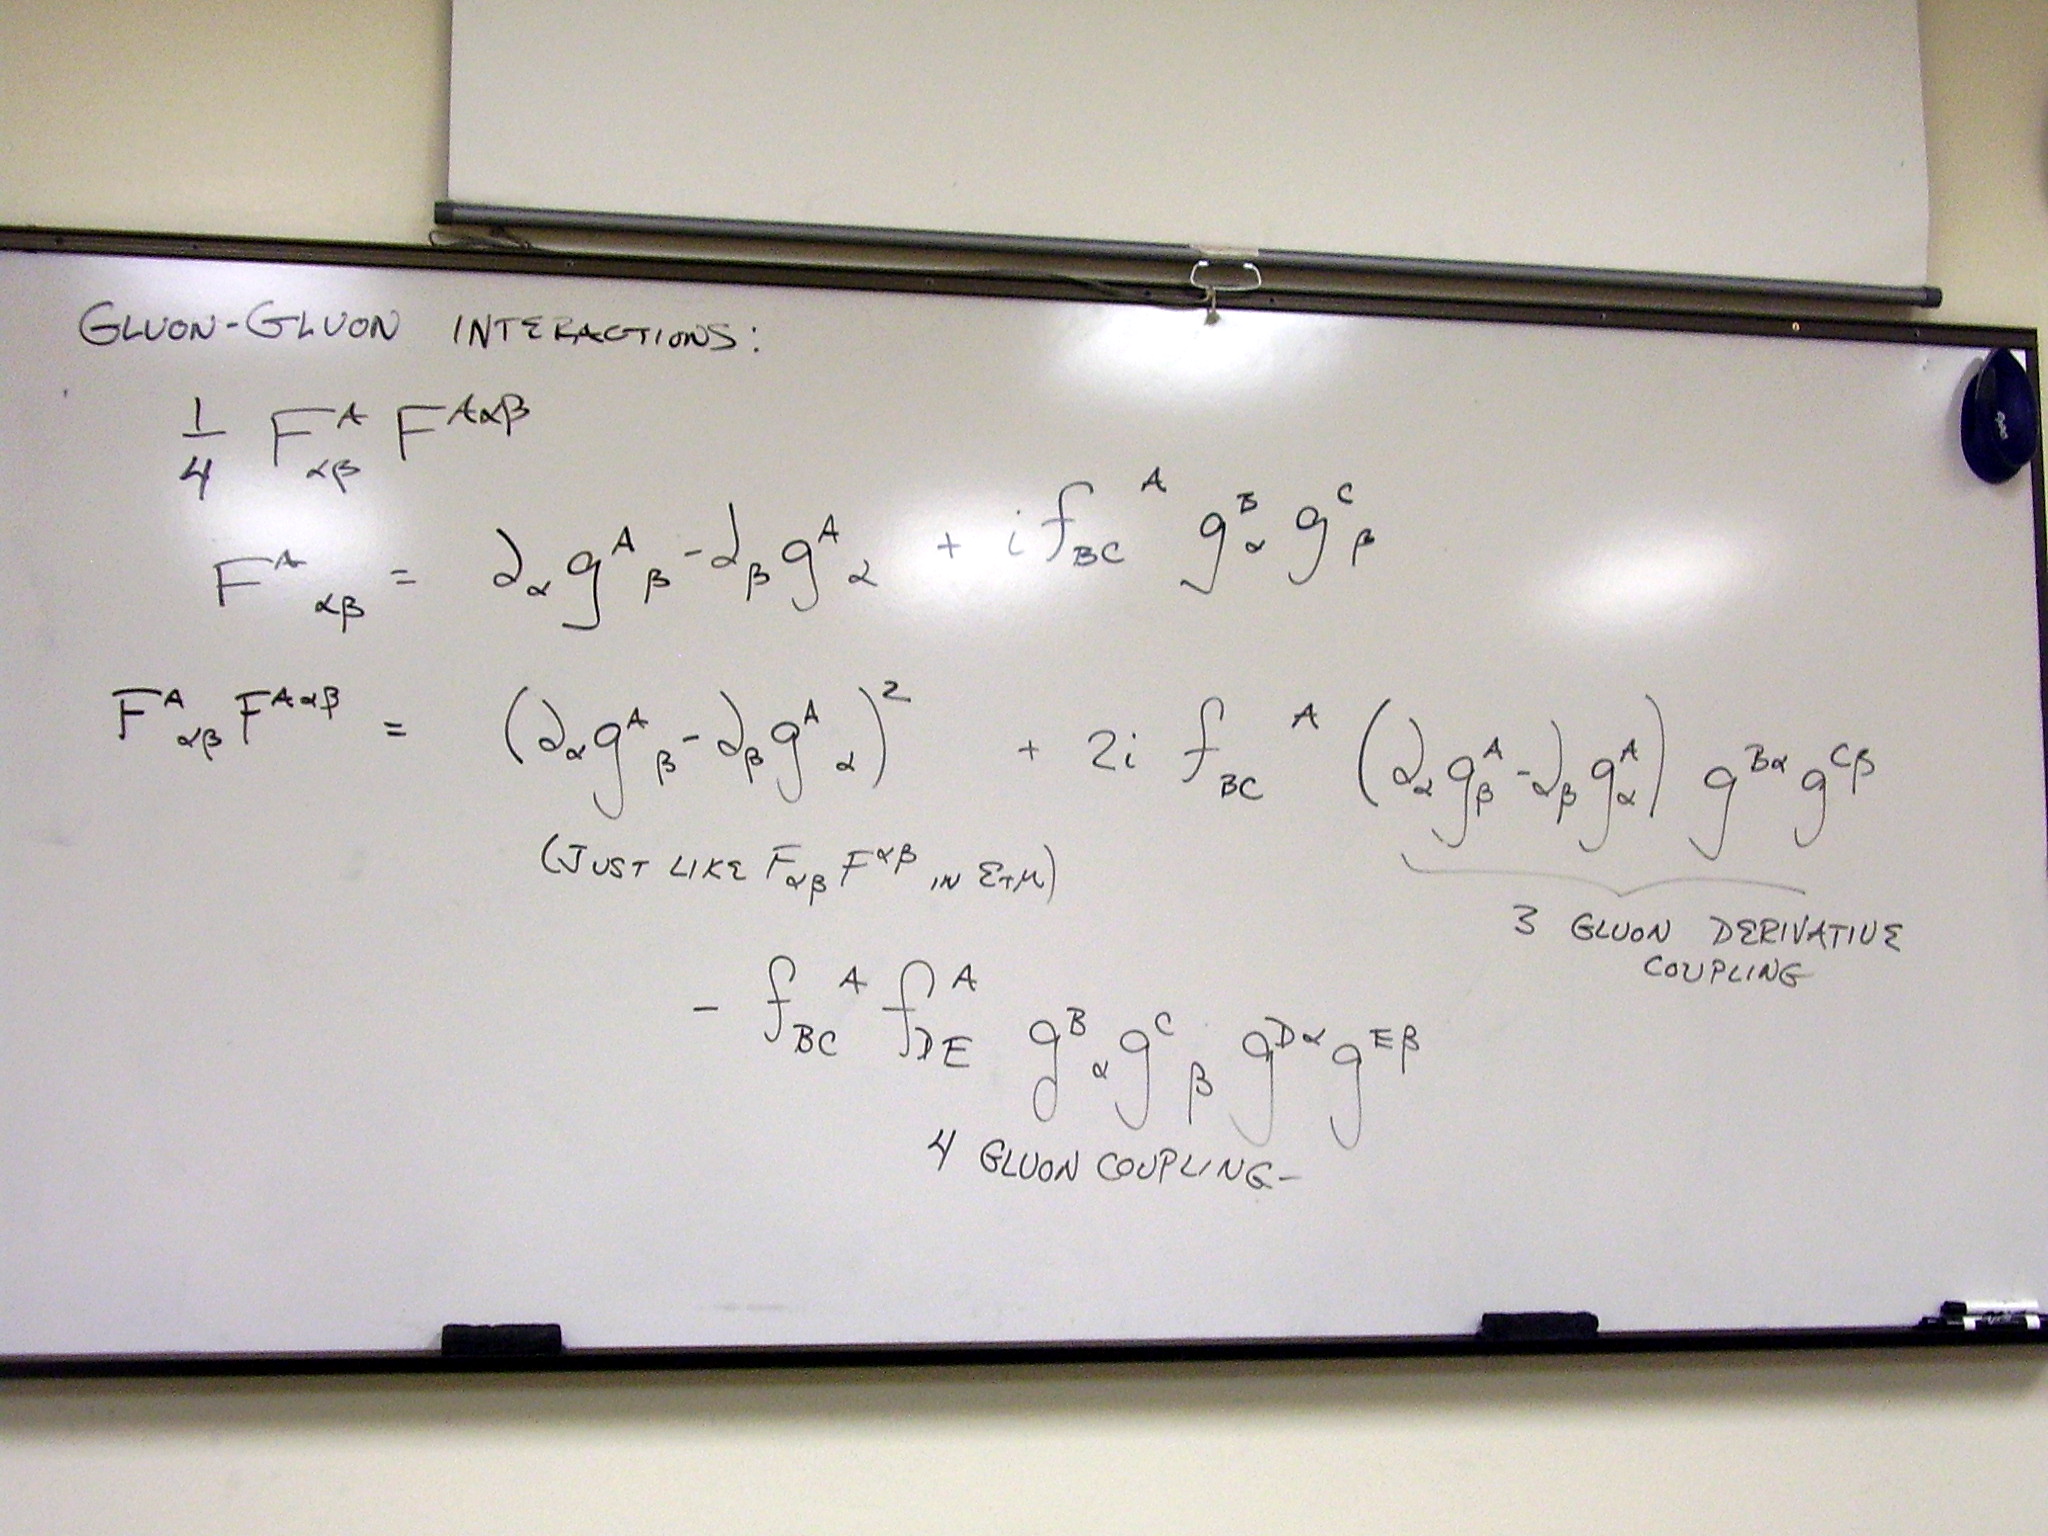 GLUON-GLUON INTERACTIONS:
1/4 F^A_αβ F^Aαβ
F^A_αβ = ∂_α g^A_β - ∂_β g^A_α + i f_BC^A g^B_α g^C_β
F^A_αβ F^Aαβ = (∂_α g^A_β - ∂_β g^A_α)^2 + 2i f_BC^A (∂_α g^A_β - ∂_β g^A_α) g^Bα g^Cβ
(JUST LIKE F_αβ F^αβ IN E+M)
3 GLUON DERIVATIVE
COUPLING
- f_BC^A f_DE^A g^B_α g^C_β g^Dα g^Eβ
4 GLUON COUPLING-